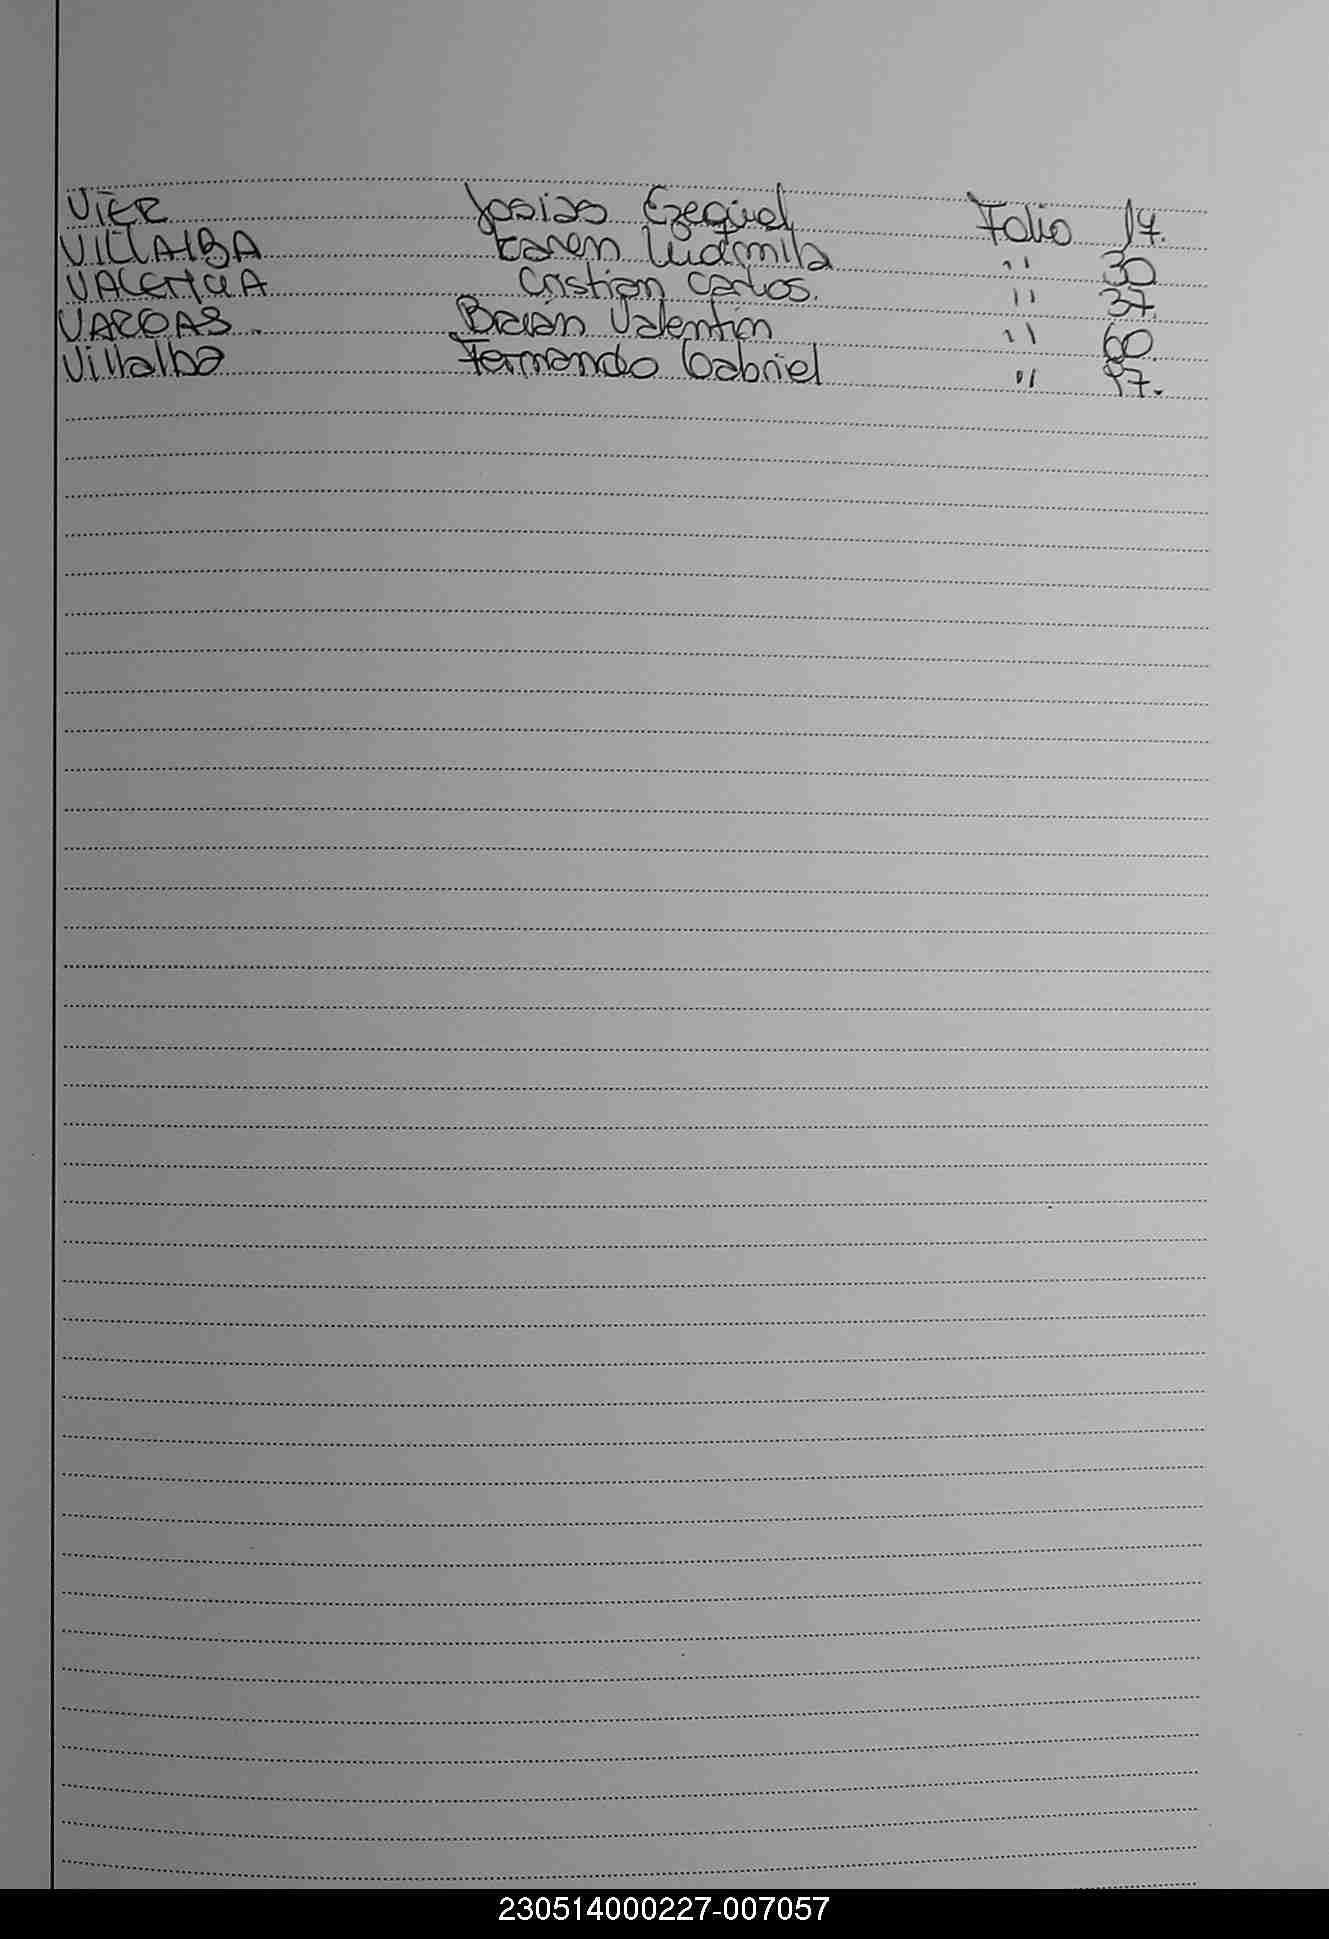 VIER Josias Ezequiel Folio 17.
VILLALBA Karen Ludmila '' 30
Cristian Carlos. '' 37.
VARGAS. Braian Valentin '' 60.
Villalba Fernando Gabriel '' 97.
230514000227-007057